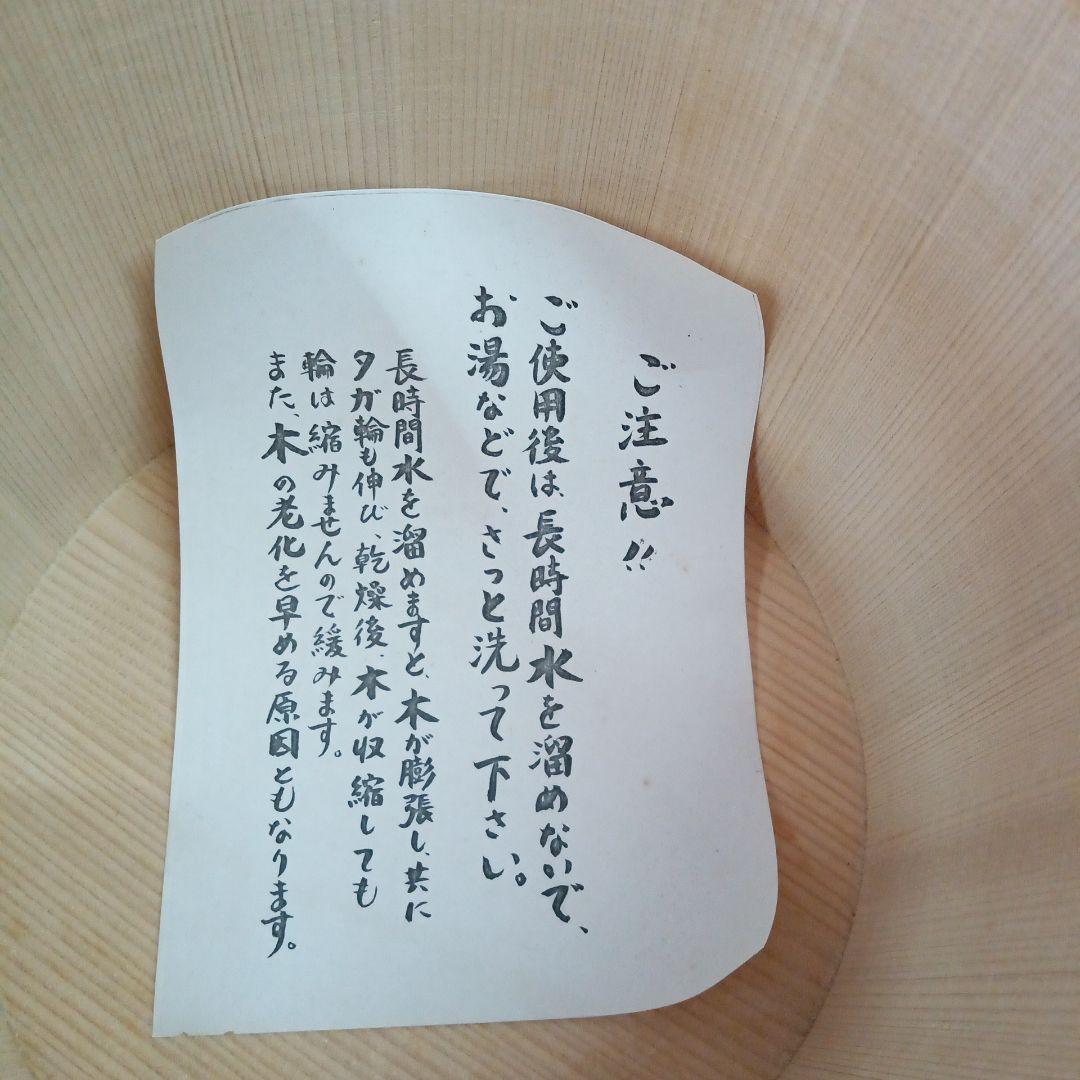 ご注意!!
ご使用後は、長時間水を溜めないで、
お湯などで、さっと洗って下さい。
長時間水を溜めますと、木が膨張し、共に
タガ輪も伸び、乾燥後、木が収縮しても
輪は縮みませんので緩みます。
また、木の老化を早める原因ともなります。